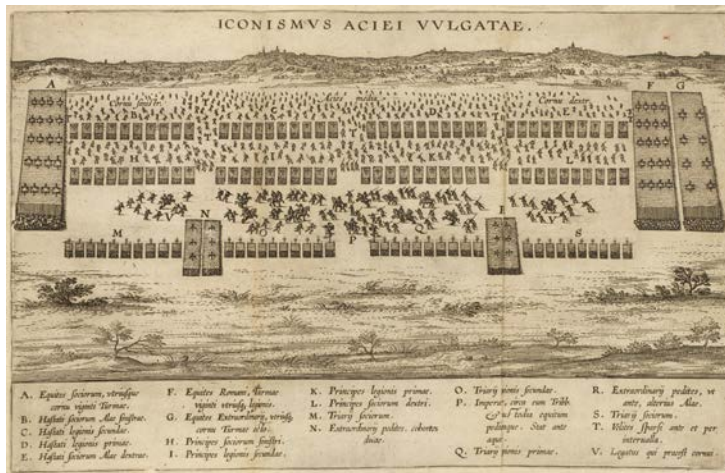 ICONISMVS ACIEI VVLGATAE.
A
F G
Cornu sinistr. Acies media Cornu dextr.
B C D E
H I K L
N
M P Q S
A. Equites sociorum, utriusque
cornu viginti Turmae.
B. Hastati sociorum Alae sinistrae.
C. Hastati legionis secundae.
D. Hastati legionis primae.
E. Hastati sociorum Alae dextrae.
F. Equites Romani, Turmae
viginti utriusq, legionis.
G. Equites Extraordinarij, utriusq,
cornu Turmae
H. Principes sociorum sinistri.
I. Principes legionis secundae.
K. Principes legionis primae.
L. Principes sociorum dextri.
M. Triarij sociorum.
N. Extraordinarij pedites, cohortes
duae.
O. Triarij legionis secundae.
P. Imperat. circa eum Tribb.
equitum
peditumque. Stat ante
Q. Triarij legionis primae.
R. Extraordinarij pedites, vt
ante, alterius Alae.
S. Triarij sociorum.
T. Velites sparsi ante et per
interualla.
V. Legatus qui praeest cornui.